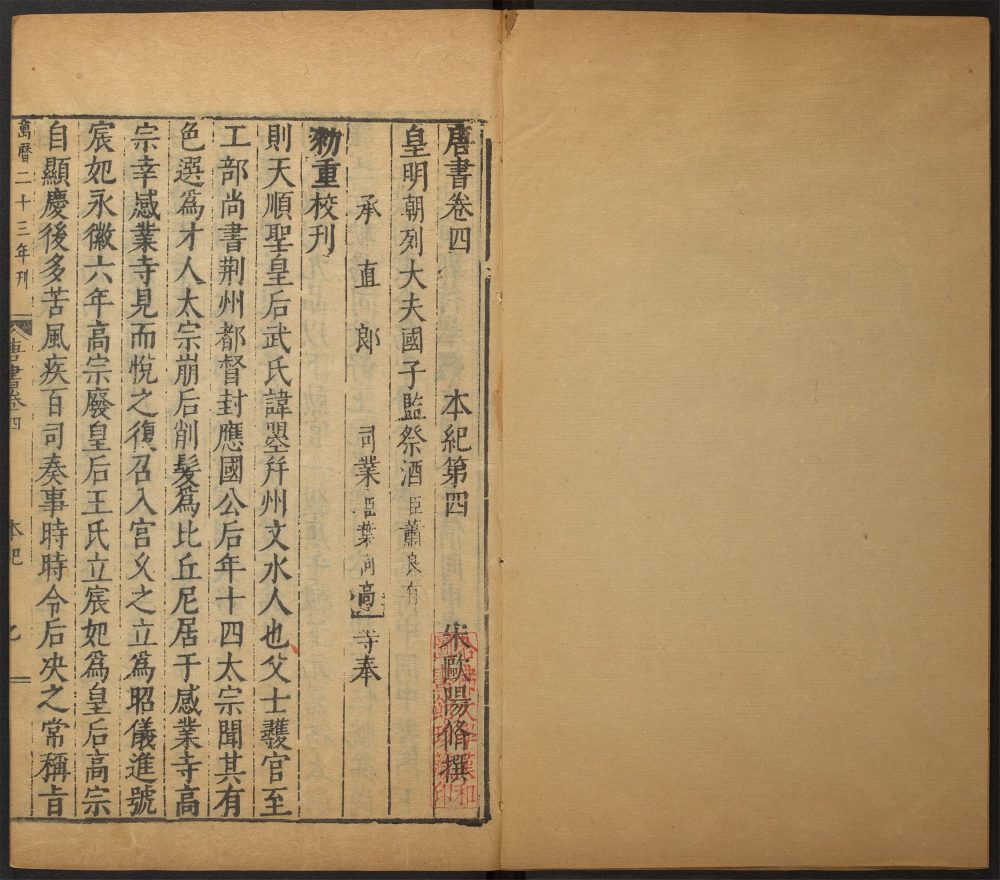 唐書卷四 本紀第四 宋歐陽脩撰
皇明朝列大夫國子監祭酒臣蕭良有
承直郎 司業臣葉向高等奉
勑重校刊
則天順聖皇后武氏諱曌并州文水人也父士彠官至
工部尚書荆州都督封應國公后年十四太宗聞其有
色選爲才人太宗崩后削髮爲比丘尼居于感業寺高
宗幸感業寺見而悅之復召入宮乆之立爲昭儀進號
宸妃永徽六年高宗廢皇后王氏立宸妃爲皇后高宗
自顯慶後多苦風疾百司奏事時時令后决之常稱旨
萬曆二十三年刊 唐書卷四 本紀